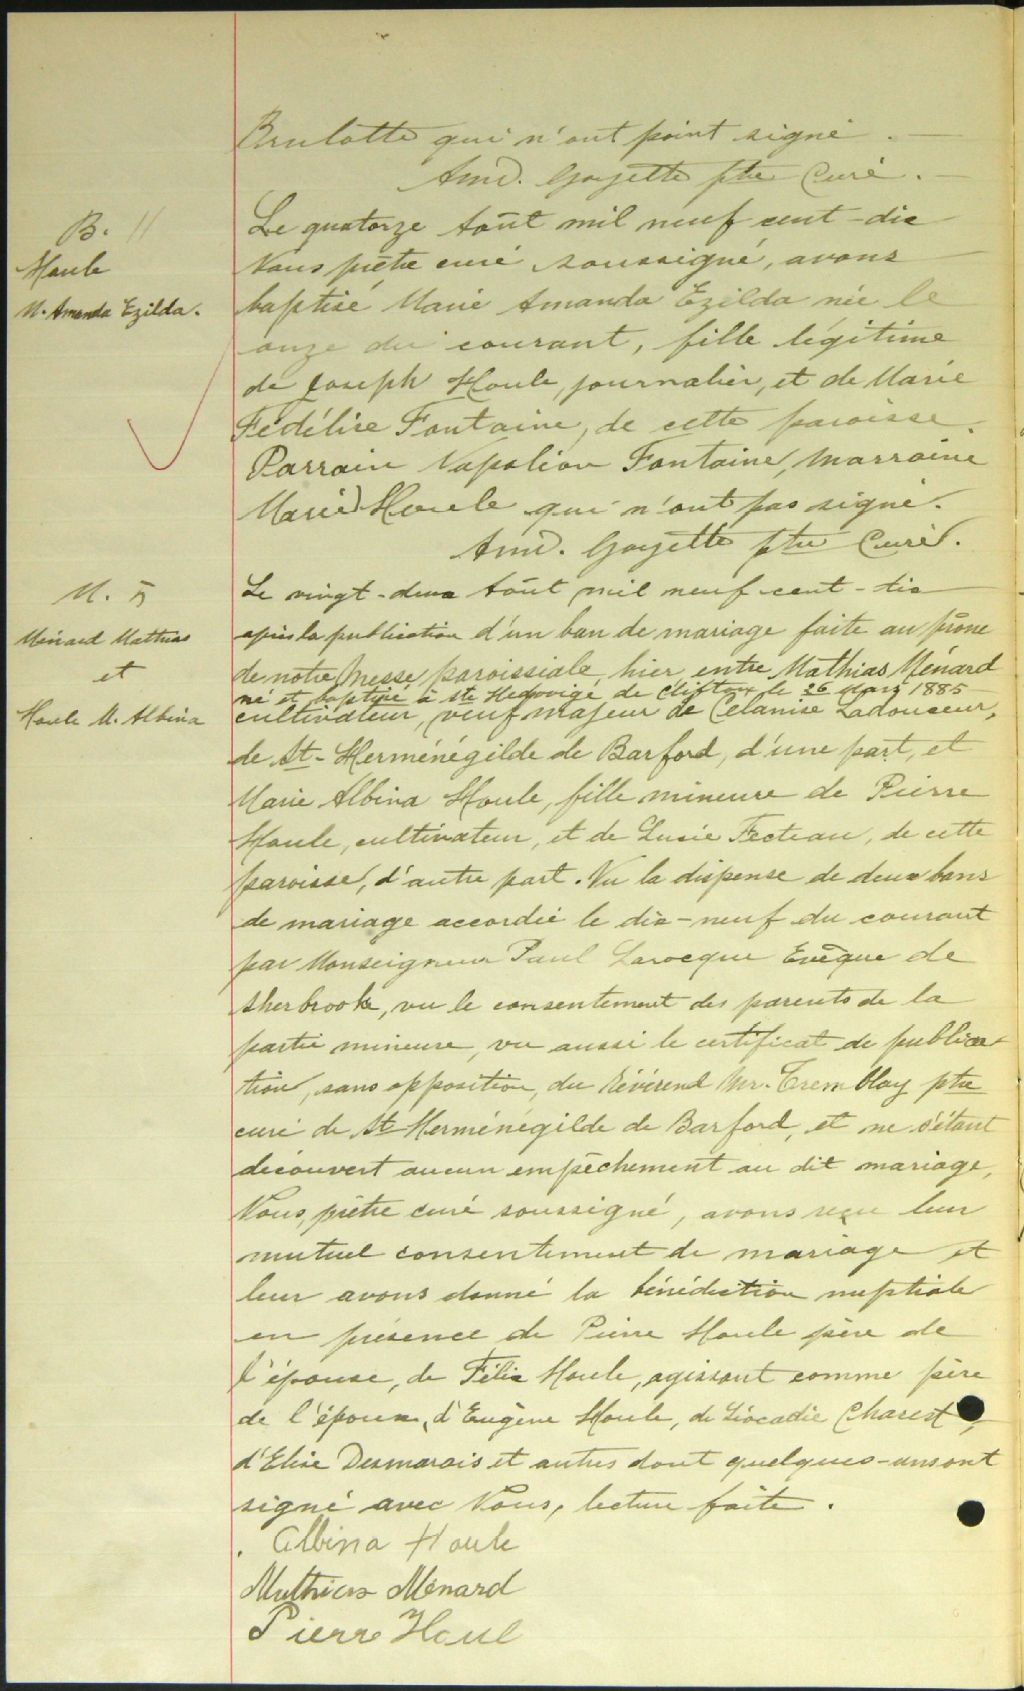 Brulotte qui n'ont point signé. —
Amd. Goyette ptre Curé. —
B. 11
Houle
M. Amanda Ezilda.
Le quatorze Août mil neuf cent-dix
Nous prêtre curé soussigné, avons
baptisé Marie Amanda Ezilda née le
onze du courant, fille légitime
de Joseph Houle, journalier, et de Marie
Fédélise Fontaine, de cette paroisse.
Parrain Napoléon Fontaine, marraine
Marie Houle qui n'ont pas signé.
Amd. Goyette ptre Curé.
M. 5
Ménard Mathias
et
Houle M. Albina
Le vingt-deux Août mil neuf-cent-dix
après la publication d'un ban de mariage faite au prône
de notre Messe paroissiale, hier entre Mathias Ménard
né et baptisé à Ste Hedwige de Clifton le 26 Mars 1885
cultivateur, veuf majeur de Célanise Ladouceur,
de St-Herménégilde de Barford, d'une part, et
Marie Albina Houle, fille mineure de Pierre
Houle, cultivateur, et de Lucie Fecteau, de cette
paroisse, d'autre part. Vu la dispense de deux bans
de mariage accordée le dix-neuf du courant
par Monseigneur Paul Larocque Evêque de
Sherbrooke, vu le consentement des parents de la
partie mineure, vu aussi le certificat de publica-
tion, sans opposition, du Révérend Mr. Tremblay ptre
curé de St Herménégilde de Barford, et ne s'étant
découvert aucun empêchement au dit mariage,
Nous, prêtre curé soussigné, avons reçu leur
mutuel consentement de mariage et
leur avons donné la bénédiction nuptiale
en présence de Pierre Houle père de
l'épouse, de Félix Houle, agissant comme père
de l'époux, d'Eugène Houle, de Léocadie Charest,
d'Elise Desmarais et autres dont quelques-uns ont
signé avec Nous, lecture faite.
Albina Houle
Mathias Ménard
Pierre Houl